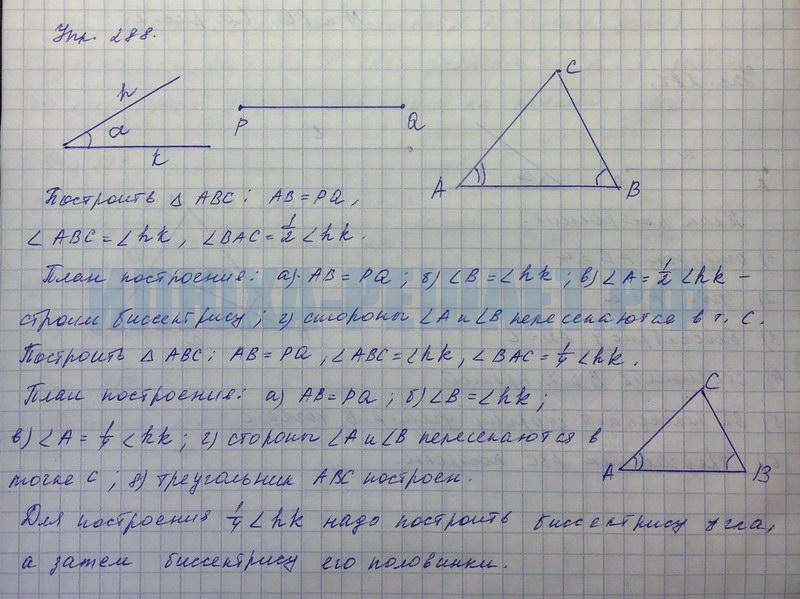 Упр. 288.
h
α
k
P
Q
C
A
B
Построить △ ABC: AB = PQ,
∠ABC = ∠hk, ∠BAC = 1/2 ∠hk.
План построения: а) AB = PQ; б) ∠B = ∠hk; в) ∠A = 1/2 ∠hk –
строим биссектрису; г) стороны ∠A и ∠B пересекаются в т. C.
Построить △ ABC: AB = PQ, ∠ABC = ∠hk, ∠BAC = 1/4 ∠hk.
План построения: а) AB = PQ; б) ∠B = ∠hk;
в) ∠A = 1/4 ∠hk; г) стороны ∠A и ∠B пересекаются в
точке C; д) треугольник ABC построен.
C
A
B
Для построения 1/4 ∠hk надо построить биссектрису угла,
а затем биссектрису его половинки.